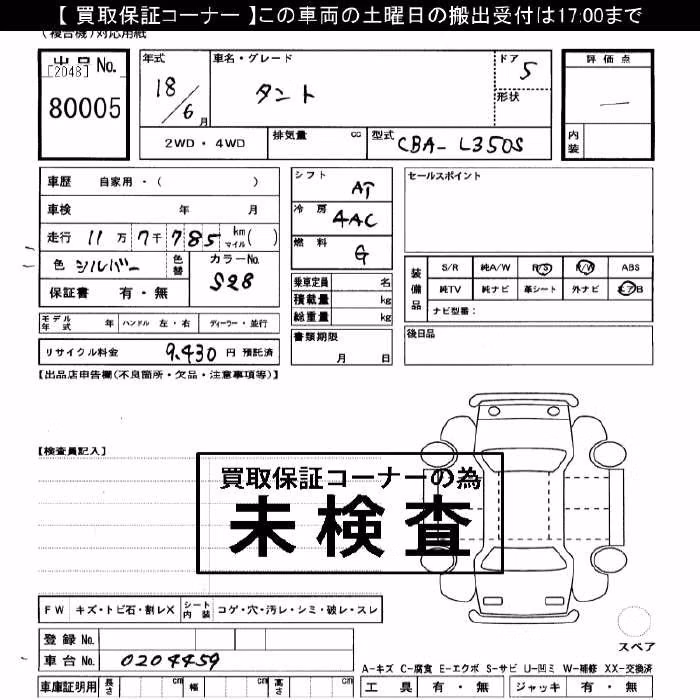 【 買取保証コーナー 】この車両の土曜日の搬出受付は17:00まで
(複合機)対応用紙
出品 No.
[2048]
80005
年式
18/6月
車名・グレード
タント
ドア
5
形状
評価点
—
内装
2WD・4WD
排気量 cc
型式 CBA- L350S
車歴 自家用・( )
車検 年 月
走行 11万7千785 km マイル( )
色 シルバー 色替
カラーNo.
S28
保証書 有・無
シフト AT
冷房 4AC
燃料 G
乗車定員 名
積載量 kg
総重量 kg
書類期限
月 日
セールスポイント
装備品
S/R 純A/W P/S P/W ABS
純TV 純ナビ 革シート 外ナビ エアB
ナビ型番:
後日品
モデル年式 年 ハンドル 左・右 ディーラー・並行
リサイクル料金 9,430 円 預託済
【出品店申告欄(不良箇所・欠品・注意事項等)】
【検査員記入】
買取保証コーナーの為
未検査
FW キズ・トビ石・割レX シート内装 コゲ・穴・汚レ・シミ・破レ・スレ
登録 No.
車台 No. 0204459
車庫証明用 長さ cm 幅 cm 高さ cm
スペア
A-キズ C-腐食 E-エクボ S-サビ U-凹ミ W-補修 XX-交換済
工具 有・無 ジャッキ 有・無